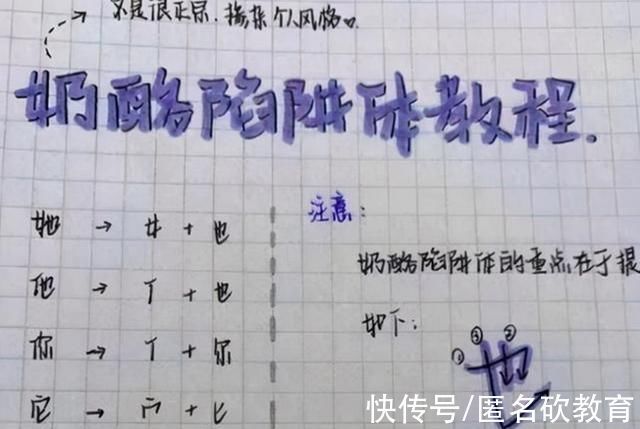 不是很正宗,掺杂个人风格。
奶酪陷阱体教程.
她 → 女 + 也
他 → 亻 + 也
你 → 亻 + 尔
它 → 宀 + 匕
注意:
奶酪陷阱体的重点在于
如下:
① ③ ②
也
快传号/匿名砍教育